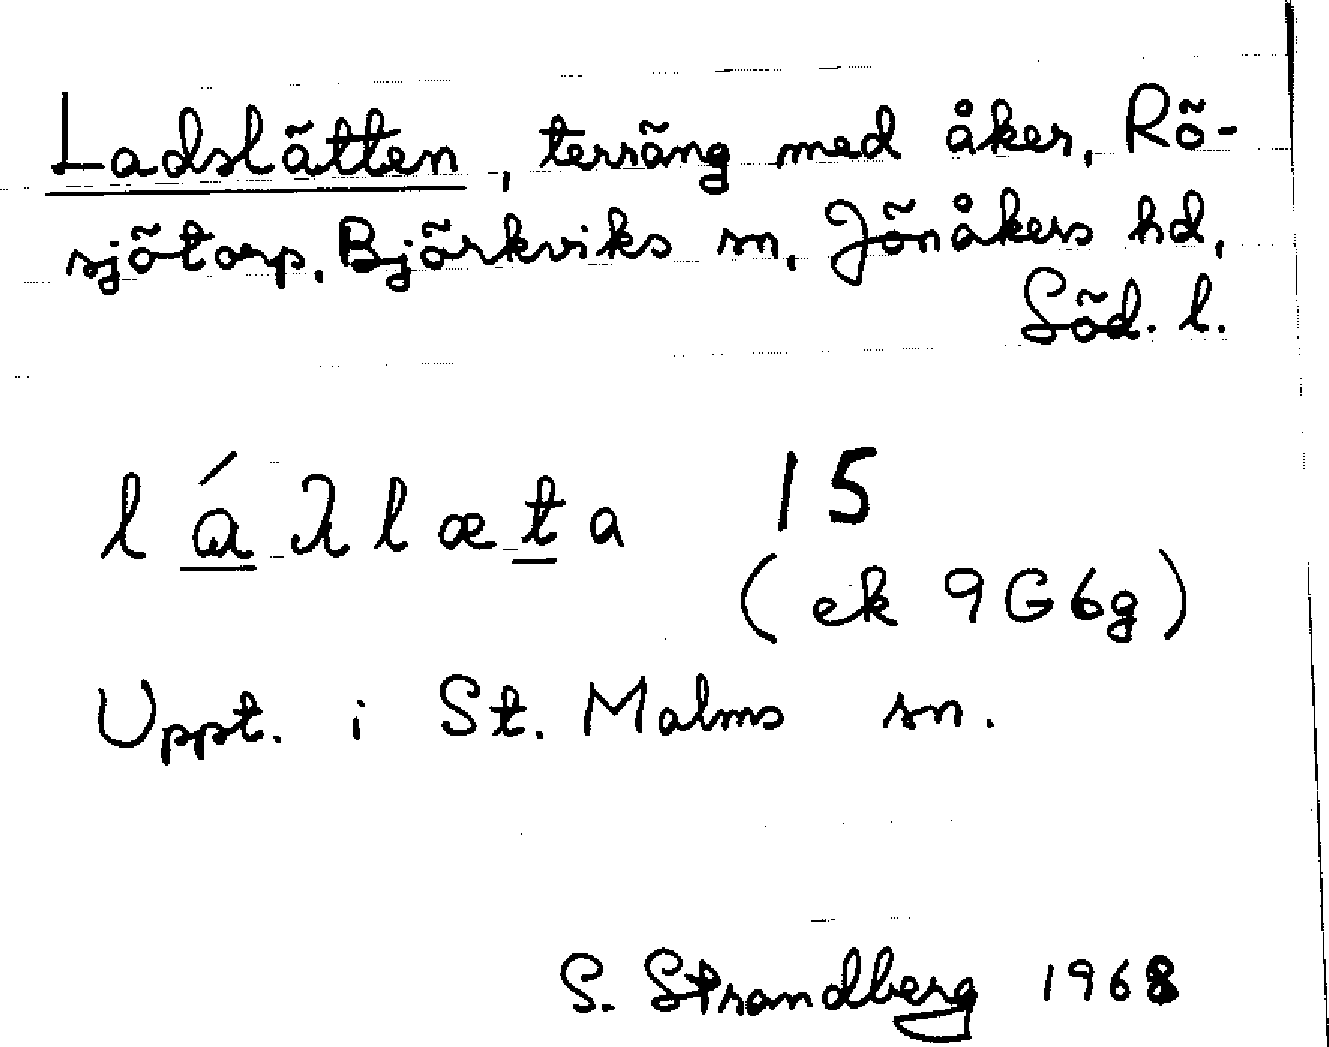 Ladslätten, terräng med åker, Rö-
sjötorp, Björkviks sn, Jönåkers hd,
Söd. l.
lá̱λlæṯa 15
(ek 9G6g)
Uppt. i St. Malms sn.
S. Strandberg 1968